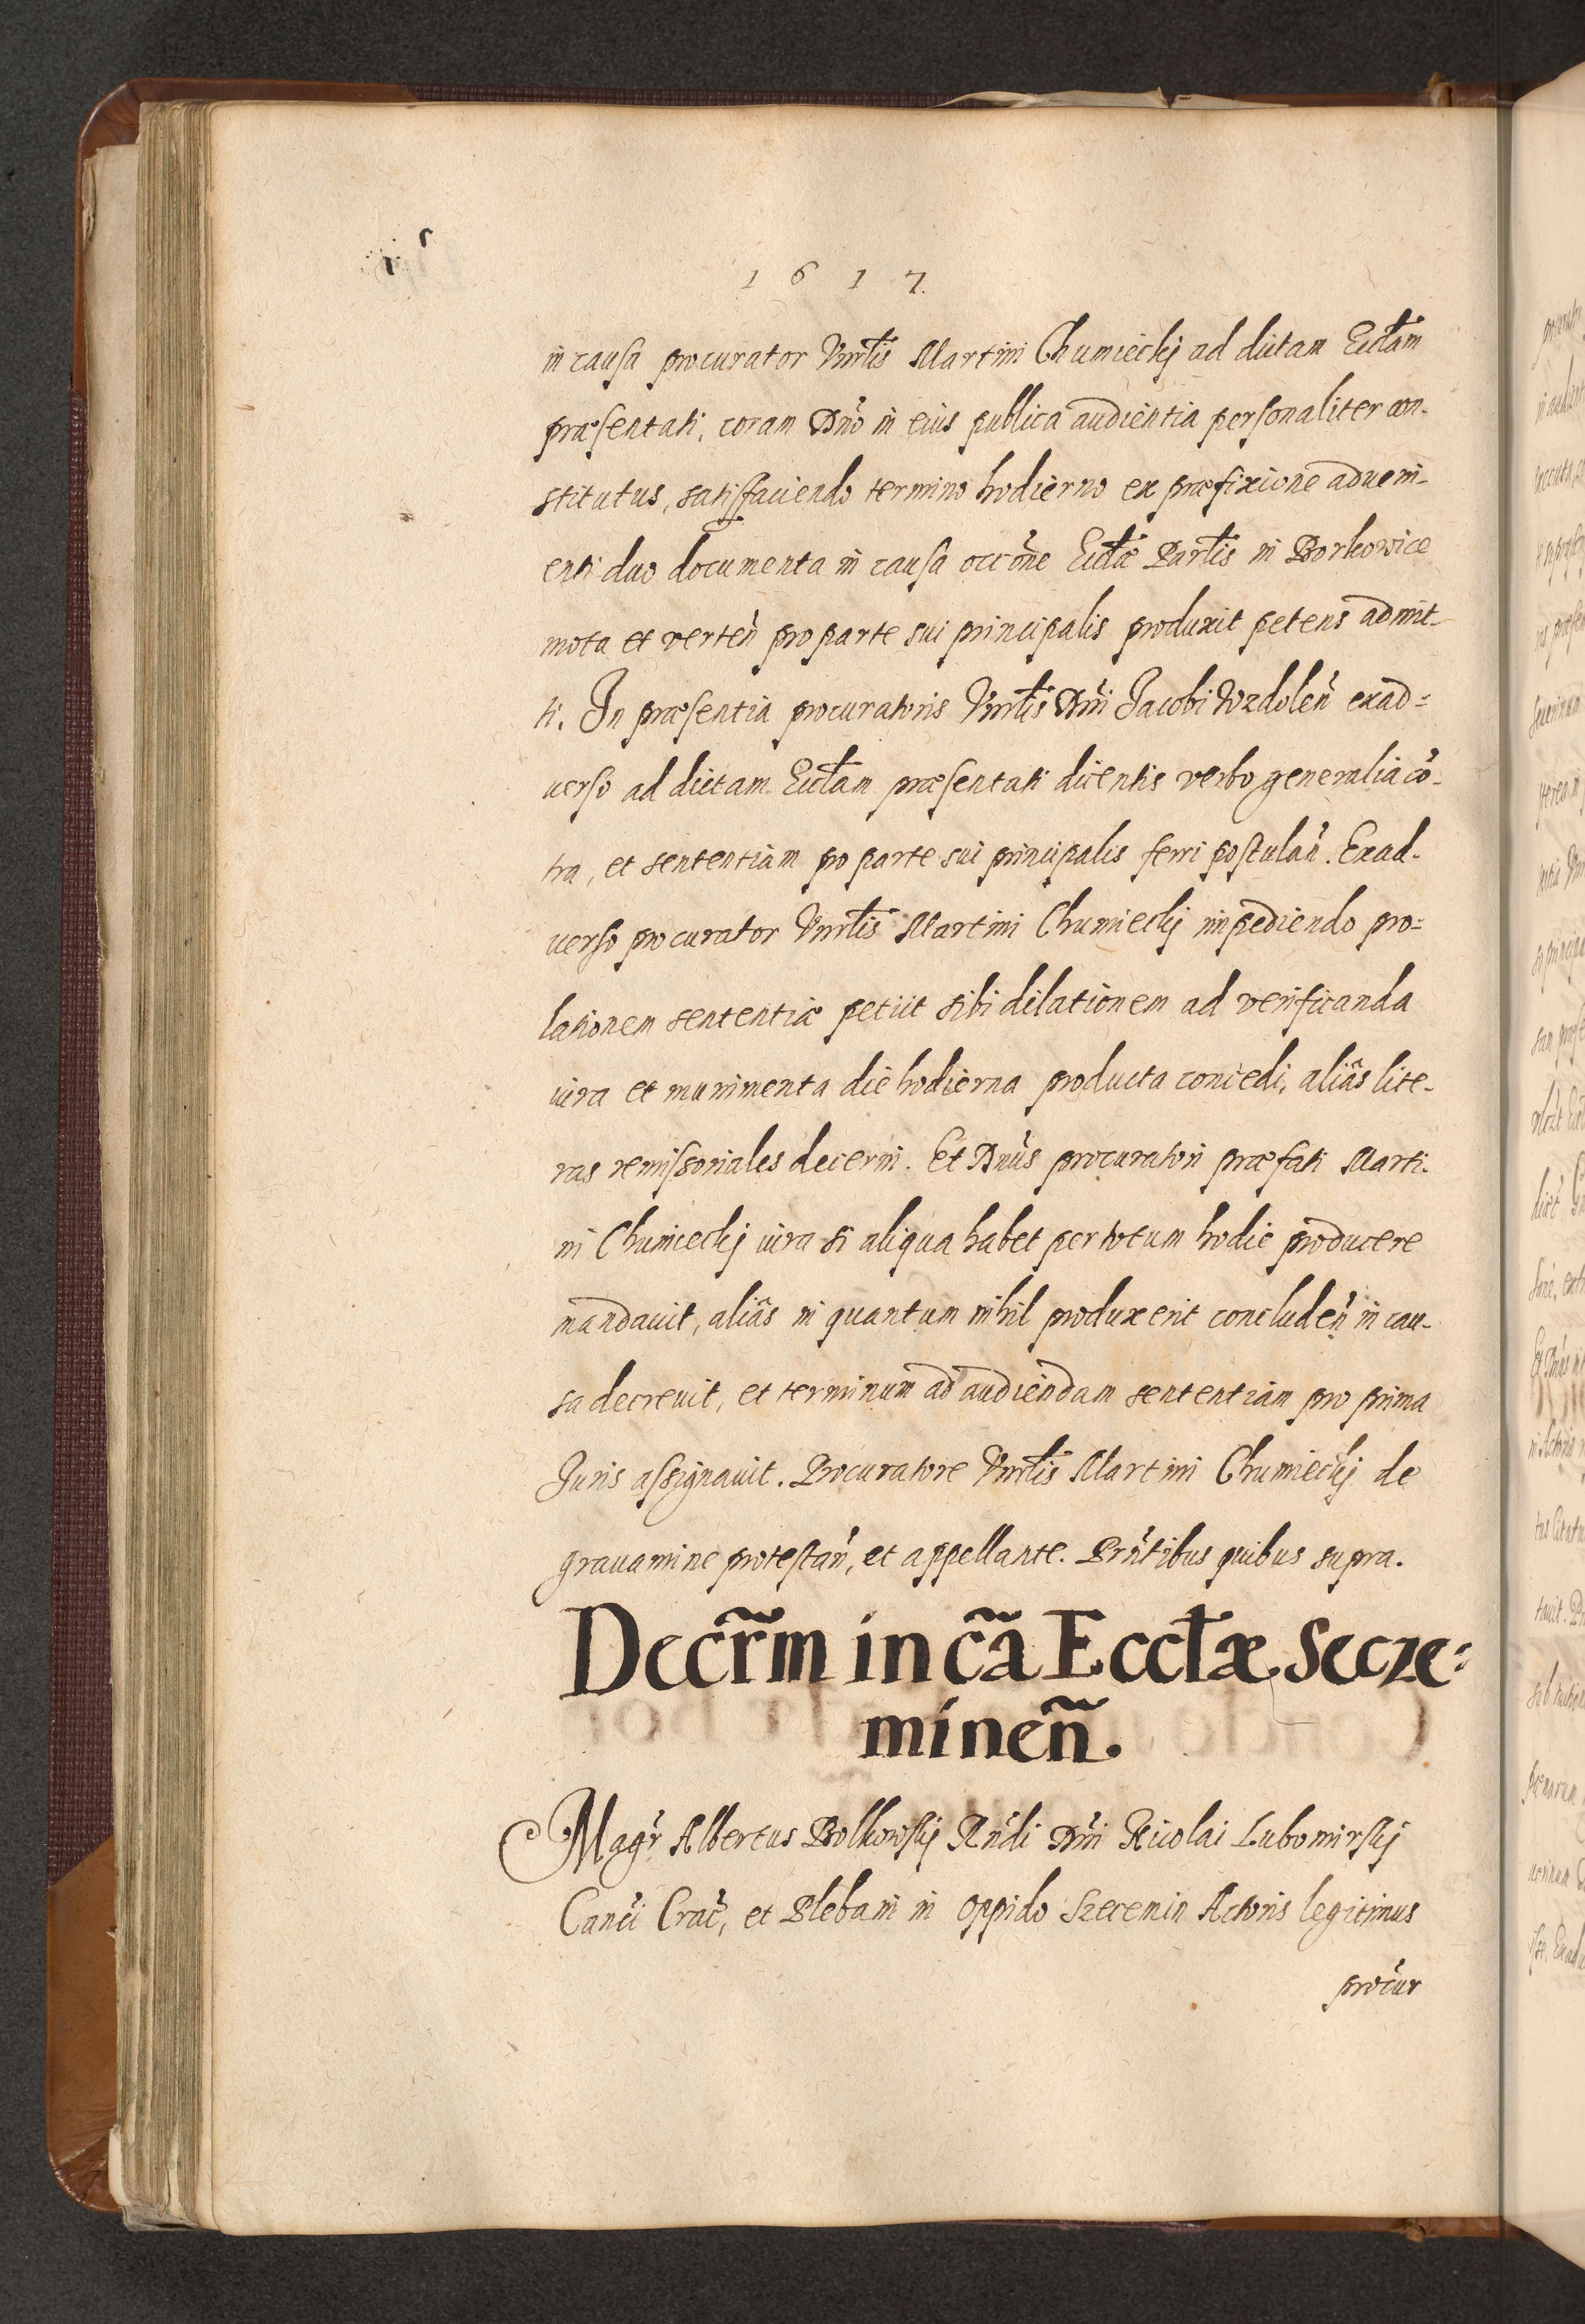 1 6 1 7.
in causa procurator Vnrłis Martini Chumieckj ad dictam Eccłam
præsentati, coram Dn̄o in eius publica audientia personaliter con-
stitutus, satisfaciendo termino hodierno ex præfixione adueni-
enti duo documenta in causa occōne Eccłæ Parłis in Borkowice
mota et verteñ pro parte sui principalis produxit petens admit-
ti. In præsentia procuratoris Vnrłis Dn̄i Jacobi Wzdoleñ exad=
uerso ad dictam Eccłam præsentati dicentis verbo generalia cō-
tra, et sententiam pro parte sui principalis ferri postulañ. Exad-
uerso procurator Vnrłis Martini Chumieckj impediendo pro=
lationem sententiæ petiit sibi dilationem ad verificanda
iura et munimenta die hodierna producta concedi, aliâs lite-
ras remissoriales decerni. Et Dn̄us procuratori præfati Marti-
ni Chumieckj iura si aliqua habet per totum hodie producere
mandauit, aliâs in quantum nihil produxerit concludeñ in cau-
sa decreuit, et terminum ad audiendam sententiam pro prima
Juris assignauit. Procuratore Vnrłis Martini Chumieckj de
grauamine protestañ, et appellante. Prn̄tibus quibus supra.
Decr̃m in cã Eccłæ Secze=
mineñ.
Magr̃ Albertus Bolkowskj Rñdi Dn̄i Nicolai Lubomirskj
Canci Crac̃, et Plebani in oppido Szecemin Actoris legitimus
procur